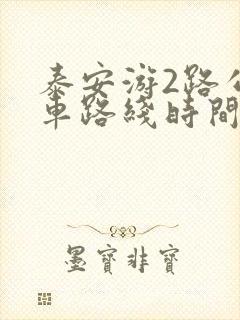 泰安游2路公
車路綫時間
墨寶非寶